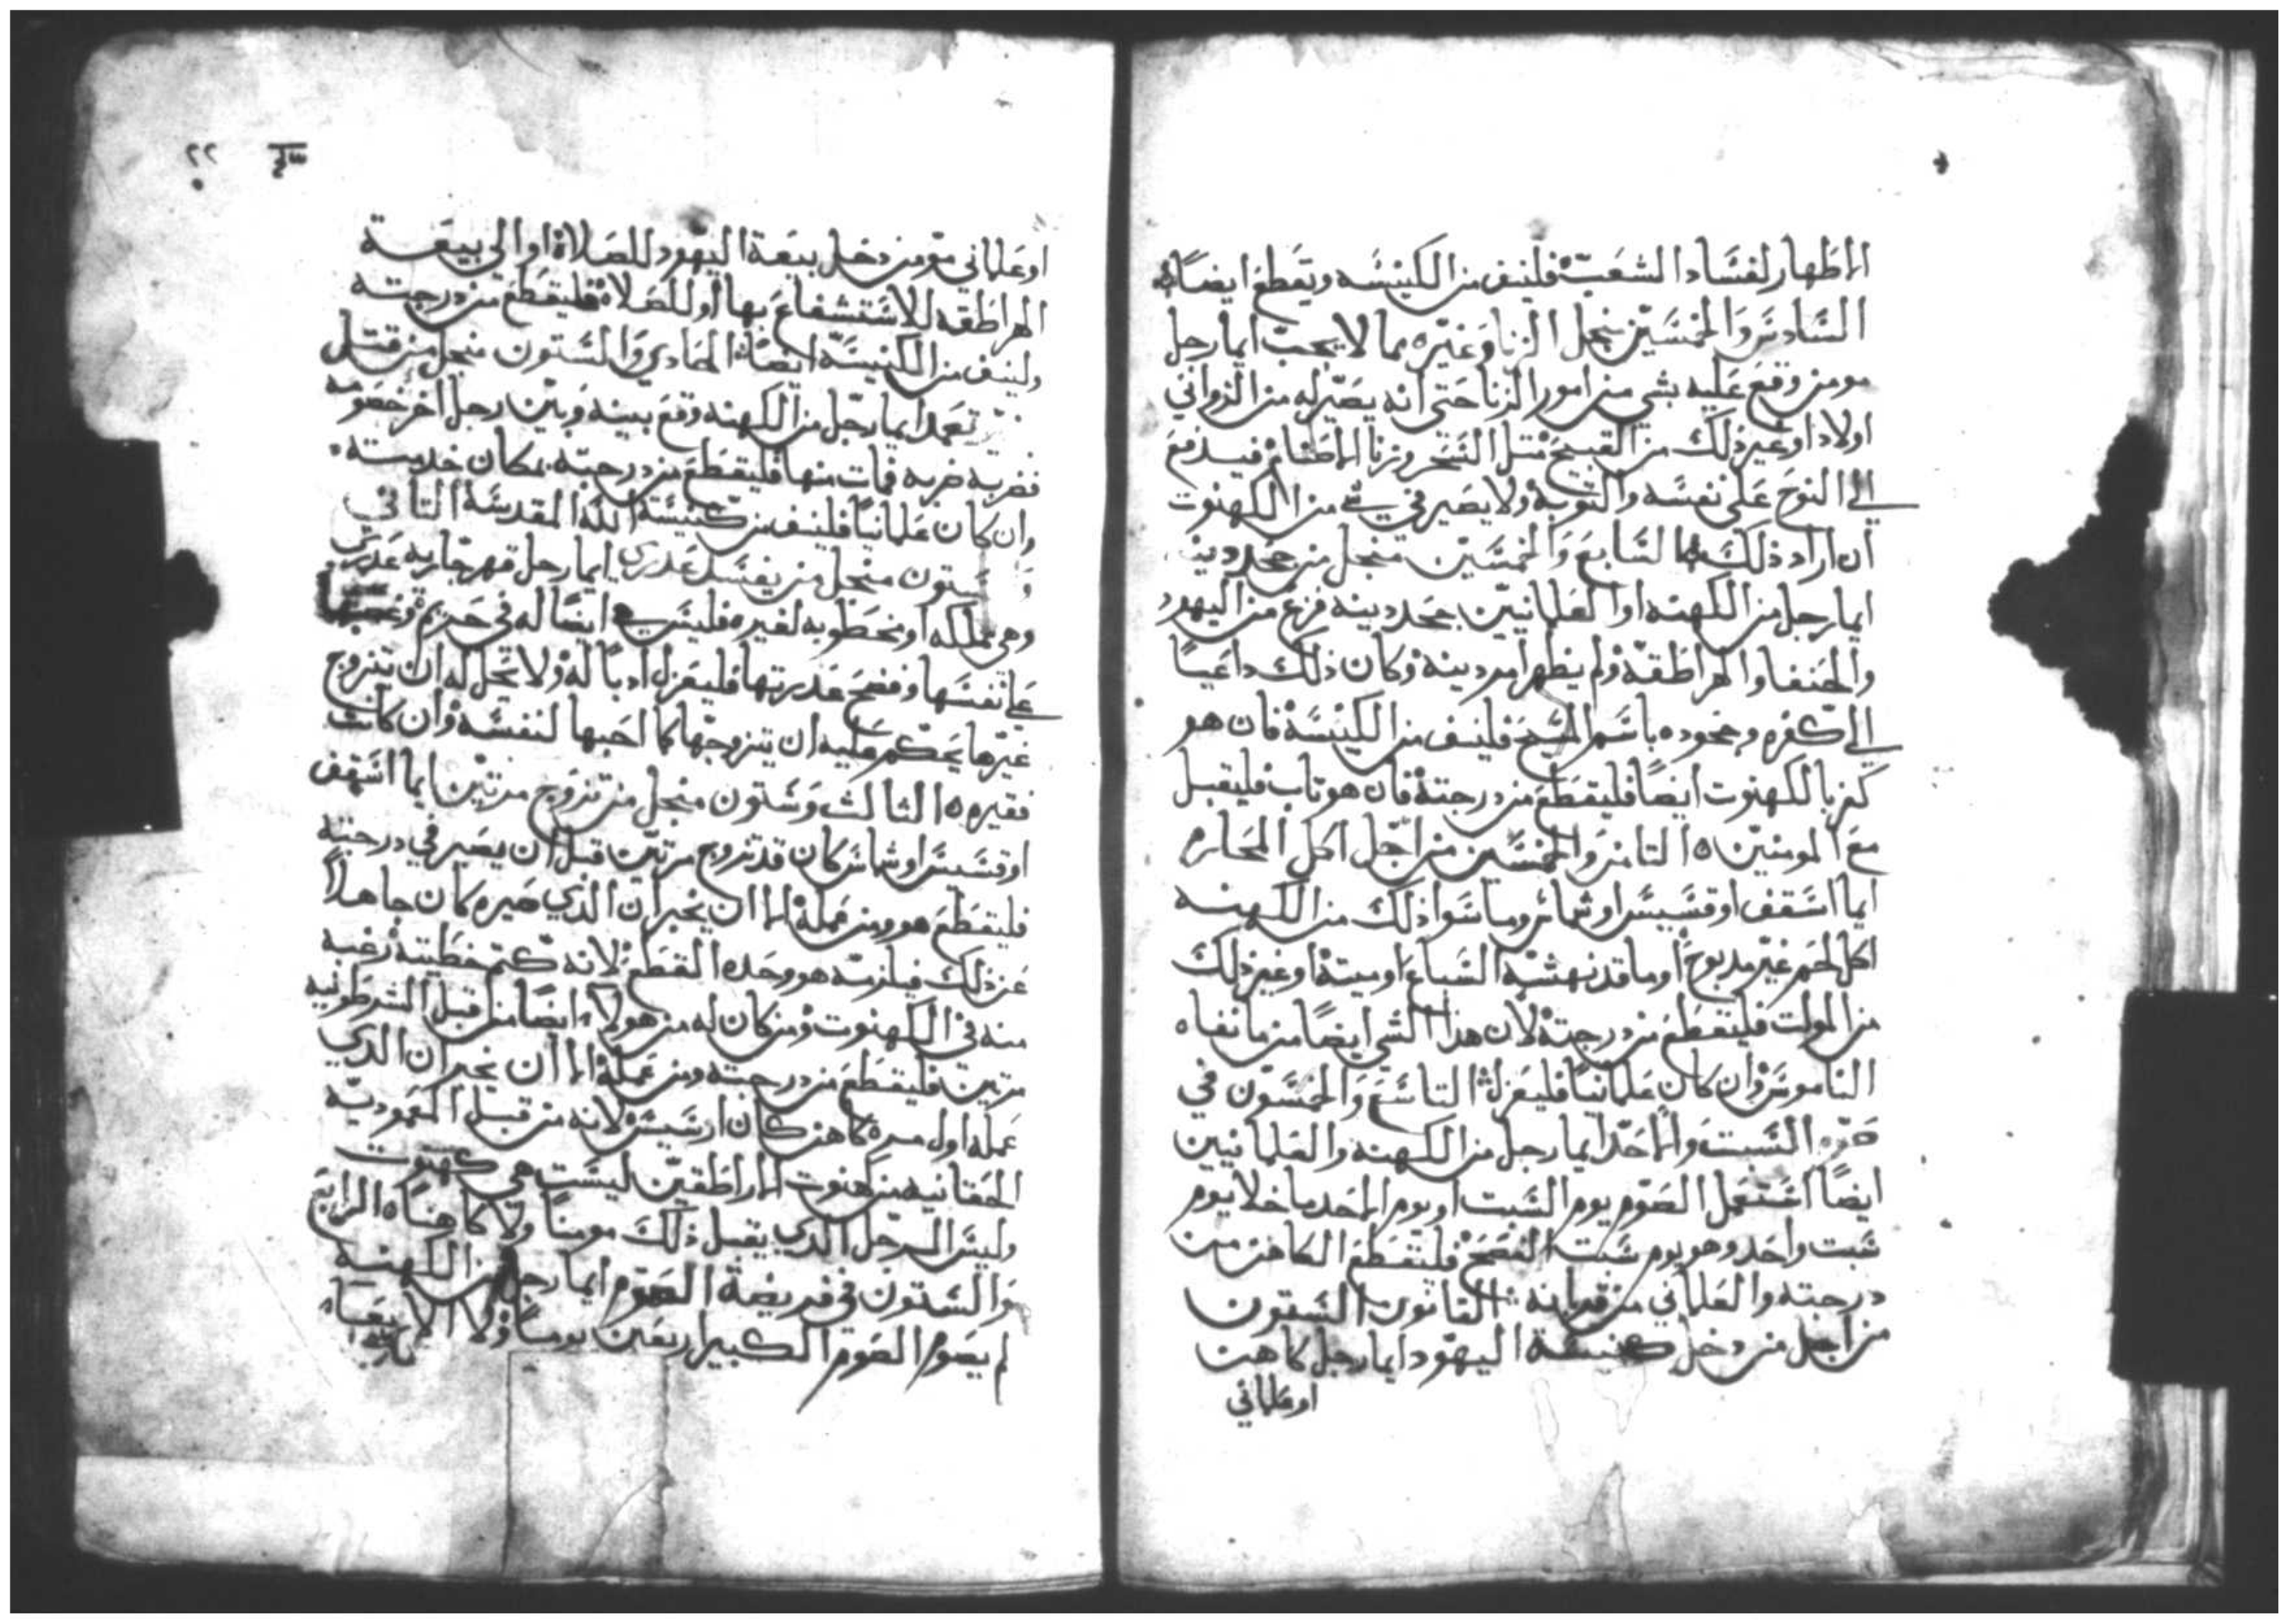 الاطهار لفساد الشعب فلينف من الكنيسه ويقطع ايضاً ه
السادس والخمسين منجل الزنا وغيره مما لا يجب ايما رجل
مومن وقع عليه بشي من امور الزنا حتى انه يصير له من الزواني
اولاد او غير ذلك من القبيح متل التنجر وزنا الاطفال فيدفع
الي النوح على نفسه والتوبة ولا يصير في شي من الكهنوت
ان اراد ذلك السابع والخمسين منجل من جحد دينه
ايما رجل من الكهنه او العلمانيين جحد دينه فزع من اليهود
والحنفا والهراطقه ولم يظهر امر دينه وكان ذلك داعياً
الي كفره وجحوده باسم المسيح فلينف من الكنيسة فان هو
كفر بالكهنوت ايضاً فليقطع من درجتة فان هو تاب فليقبل
مع المومنين ه التامن والخمسين من اجل اكل المحارم
ايما اسقف او قسيس او شماس وما سوا ذلك من الكهنه
اكل لحم غير مدبوح او ما قد نهشه السباع او ميتة او غير ذلك
من الموات فليقطع من درجتة لان هذا الشي ايضاً من ما نفاه
الناموس وان كان علمانياً فليعزل التاسع والخمسون في
صوم السبت والاحد ايما رجل من الكهنه والعلمانيين
ايضاً استعمل الصوم يوم السبت او يوم الاحد ما خلا يوم
سبت واحد وهو يوم سبت الفصح فليقطع الكاهن من
درجته والعلماني من قربانه القانون الستون
من اجل من دخل كنيسة اليهود ايما رجل كاهن
او علماني
٢٢
او علماني مومن دخل بيعة اليهود للصلاة او الى بيعة
الهراطقه للاستشفاع بها او للصلاة فليقطع من درجته
ولينف من الكنيسة ايضاً الحادي والستون منجل من قتل
تعمد ايما رجل من الكهنه وقع بينه وبين رجل اخر خصومه
فضربه ضربه فمات منها فليقطع من درجته بمكان خدمته
وان كان علمانياً فلينف من كنيسة الله المقدسة التاني
وستون منجل من يفسد عدرى ايما رجل قهر جاريه عدرى
وهي مملكه او مخطوبه لغيره فليقس ايضاً له في حزم
على نفسها وفضح عدريتها فليعزل ادباً له ولا تحل له ان تتزوج
غيرها يحكم عليه ان يتزوجها كما احبها لنفسه وان كانت
فقيره ه الثالث وستون منجل من تزوج مرتين ايما اسقف
او قسيس او شماس كان قد تزوج مرتين قبل ان يصير في درجته
فليقطع هو ومن عمله الا ان يخبر ان الذي صيره كان جاهلاً
عن ذلك فيلزمه هو وحده القطع لانه كتم خطيته رغبه
منه في الكهنوت ومن كان له من هولاء ايضاً من قبل الشرطونيه
مرتين فليقطع من درجته ومن عمله الا ان يخبر ان الذي
عمله اول مره كاهن كان ارسيس لانه من قبل المعموديه
الحقانيه من كهنوت الاراطقيين ليست هي كهنوت
وليس الرجل الذي يقبل ذلك مومناً ولا كاهناً ه الرابع
والستون في فريضة الصوم ايما رجل من الكهنه
لم يصوم الصوم الكبير اربعين يوماً ولا الاربعاء